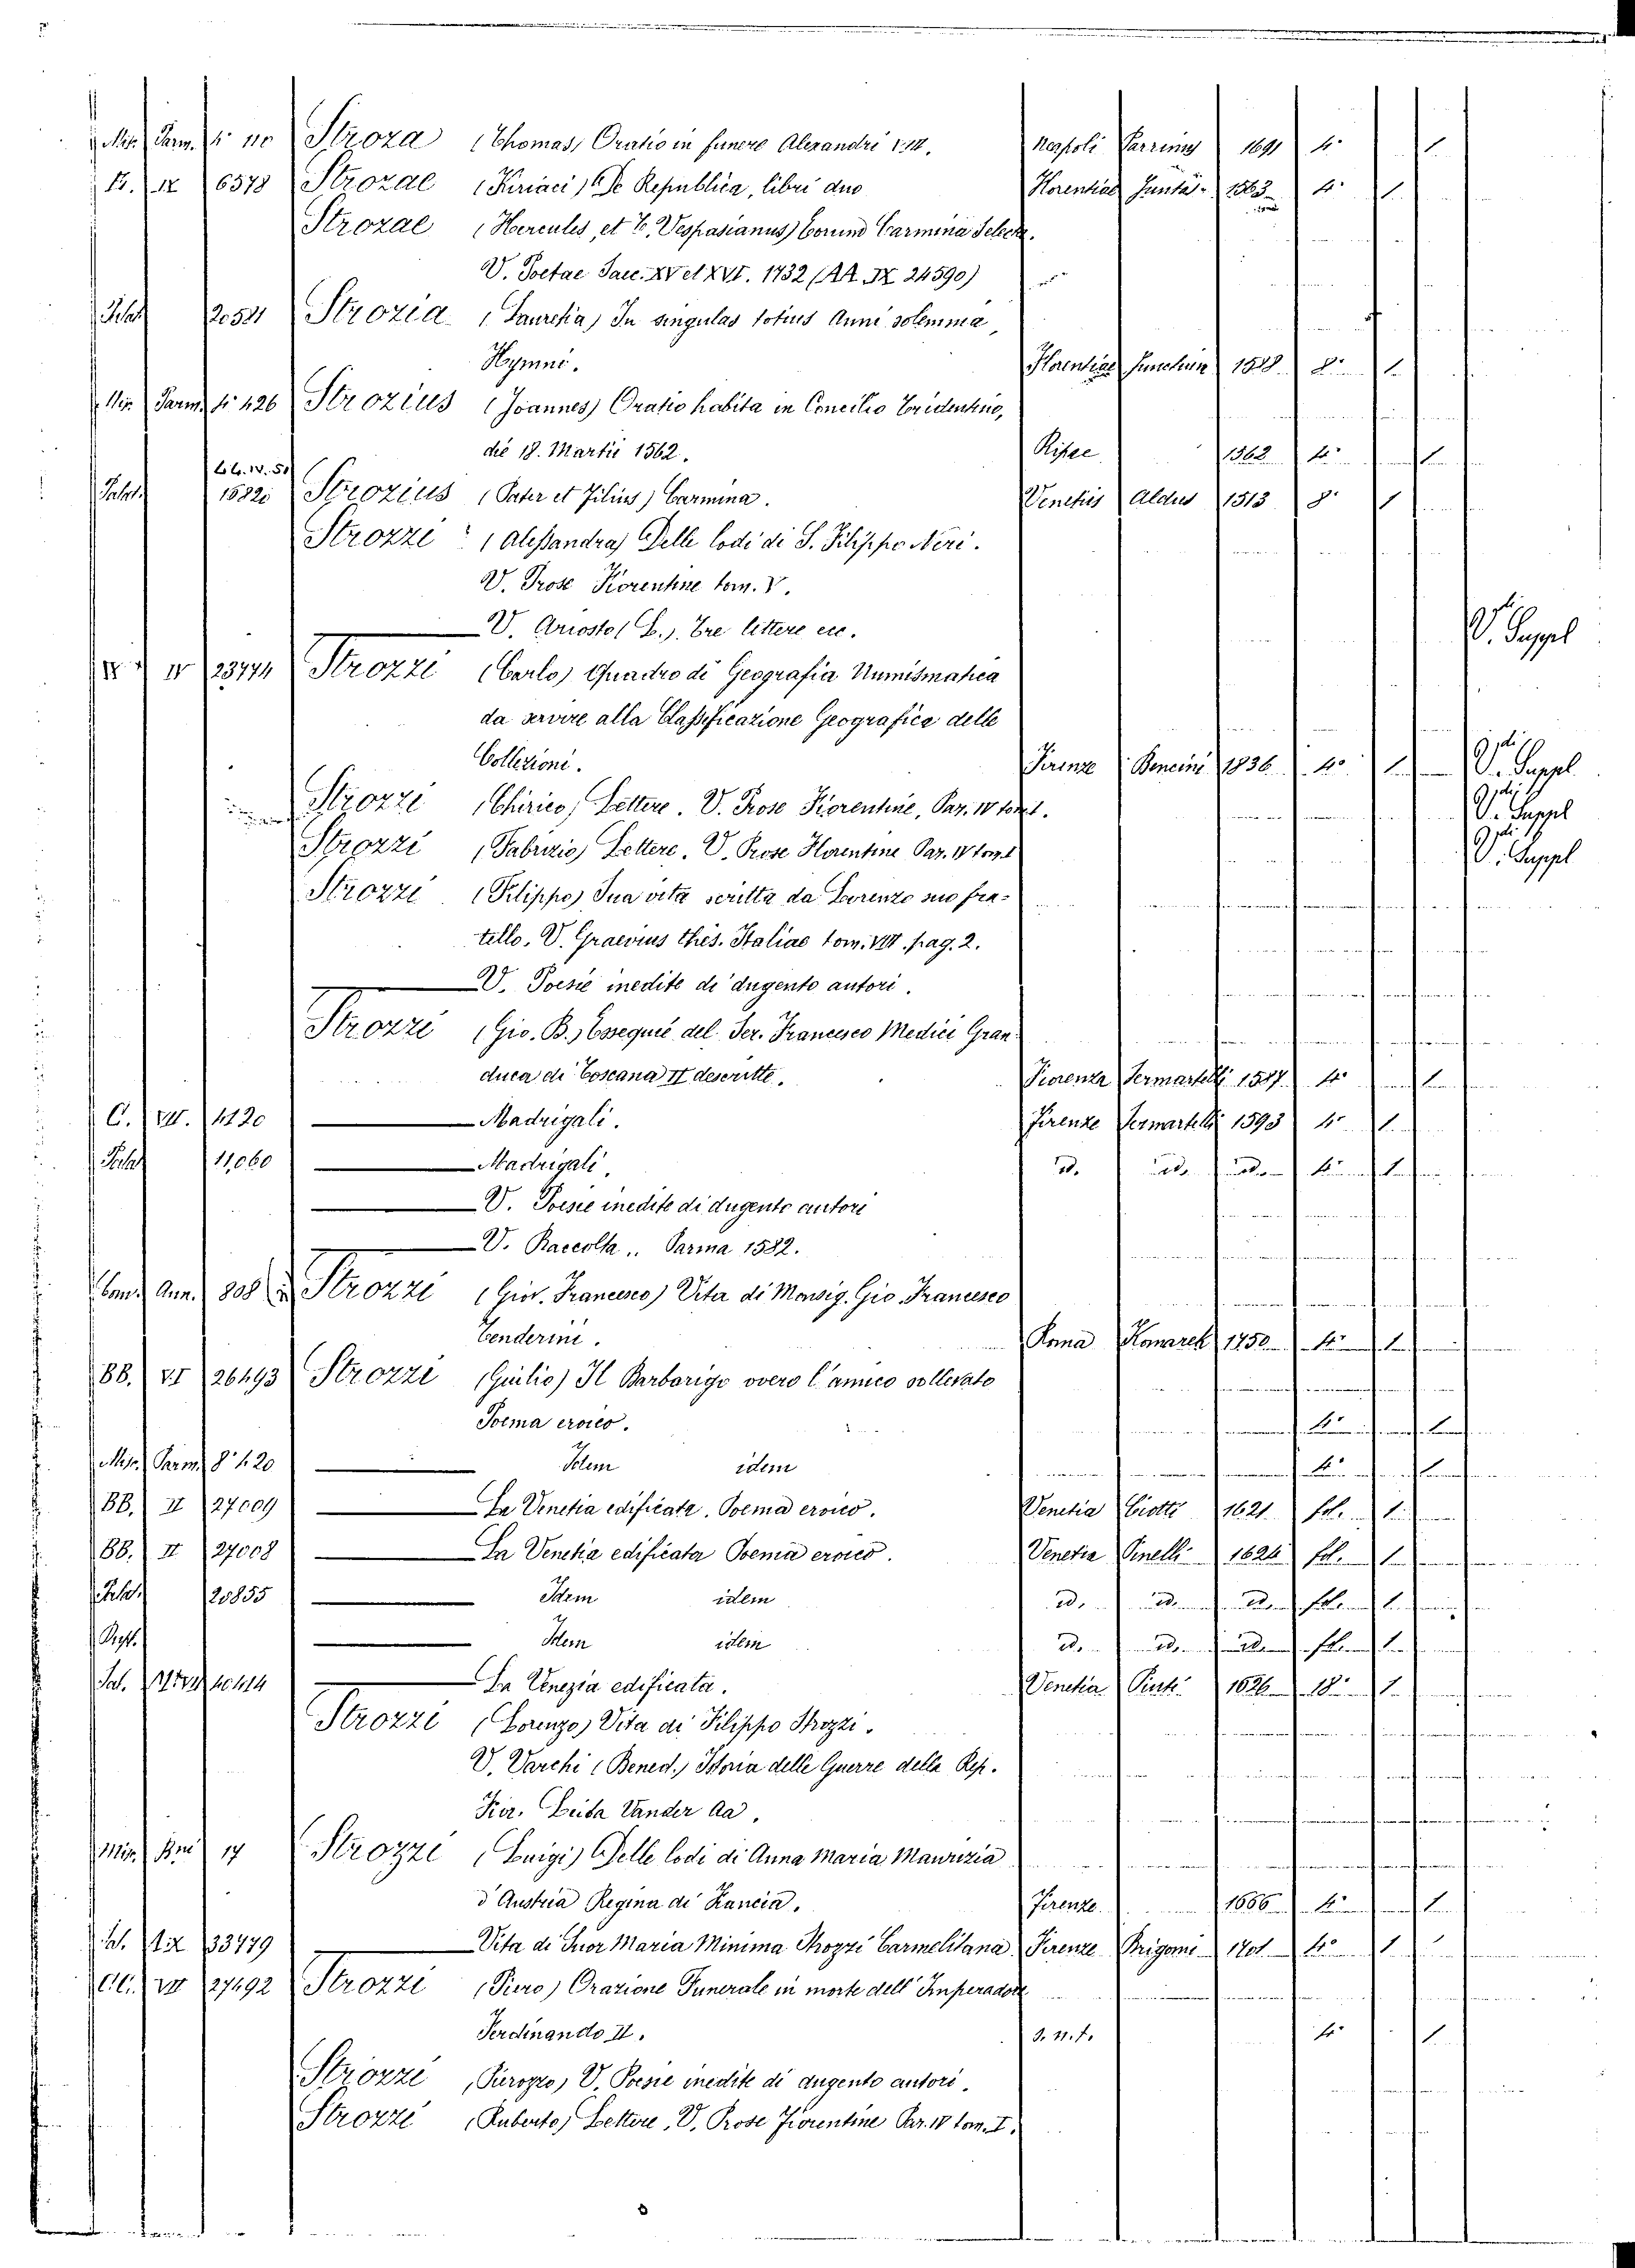 Mis. Parm. 4° 110 Stroza (Thomas) Oratio in funere Alexandri VIII. Neapoli Parrini 1691 4° 1
R. IX 6578 Strozae (Kiriaci) De Republica, libri duo Florentiae Junta 1563 4° 1
Strozae (Hercules, et T. Vespasianus) Eorund Carmina Selecta.
V. Poetae Saec. XV et XVI. 1732 (AA. IX 24590)
Palat. 20521 Strozia (Lauretia) In singulas totius Anni solemnia,
Hymni. Florentiae Junctum 1588 8° 1
Mis. Parm. 4° 426 Strozius (Joannes) Oratio habita in Concilio Tridentino,
die 18. Martii 1562. Ripae 1562 4° 1
Palat. 15820 Strozius (Pater et Filius) Carmina. Venetiis Aldus 1513 8° 1
Strozzi (Alessandra) Delle lodi di S. Filippo Neri.
V. Prose Fiorentine tom. V.
V. Ariosto (L.). Tre lettere etc. V. Suppl
IV 23774 Strozzi (Carlo) Quadro di Geografia Numismatica
da servire alla Classificazione Geografica delle
Collezioni. Firenze Bencini 1836 4° 1 V. Suppl
Strozzi (Chirico) Lettere. V. Prose Fiorentine, Par. IV tom. 1. V. Suppl
Strozzi (Fabrizio) Lettere. V. Prose Fiorentine Par. IV tom. 1 V. Suppl
Strozzi (Filippo) Sua vita scritta da Lorenzo suo fra-
tello. V. Graevius thes. Italiae tom. VIII. pag. 2.
V. Poesie inedite di dugento autori.
Strozzi (Gio. B.) Essequie del Ser. Francesco Medici Gran
duca di Toscana II descritte. Fiorenza Sermartelli 1587 4° 1
C. VII. 4120 Madrigali. Firenze Sermartelli 1593 4° 1
Palat 11,060 Madrigali. id. id. id. 4° 1
V. Poesie inedite di dugento autori
V. Raccolta .. Parma 1582.
Ann. 808 Strozzi (Giov. Francesco) Vita di Monsig. Gio Francesco
Tenderini. Roma Komarek 1750 4° 1
BB. VI 26493 Strozzi (Giulio) Il Barbarigo overo l'amico sollevato
Poema eroico. 4° 1
Mis. Parm. 8° 420 Idem idem 4° 1
BB. II 27009 La Venetia edificata. Poema eroico. Venetia Ciotti 1621 fol. 1
BB. II 27008 La Venetia edificata Poema eroico. Venetia Pinelli 1624 fol. 1
Palat. 20855 Idem idem id. id. id. fol. 1
Idem idem id. id. id. fol. 1
Sal. 10414 La Venezia edificata. Venetia 1626 18° 1
Strozzi (Lorenzo) Vita di Filippo Strozzi.
V. Varchi (Bened.) Istoria delle Guerre della Rep.
Fior. Leida Vander Aa.
Mis. 17 Strozzi (Luigi) Delle lodi di Anna Maria Maurizia
d'Austria Regina di Francia. Firenze 1666 4° 1
IX 33779 Vita di Suor Maria Minima Strozzi Carmelitana Firenze Brigoni 1701 4° 1
CC. VII 27492 Strozzi (Piero) Orazione Funerale in morte dell' Imperadore
Ferdinando II. S. n. t. 4° 1
Strozzi V. Poesie inedite di dugento autori.
Strozzi (Ruberto) Lettere, V. Prose Fiorentine Par. IV tom. I.